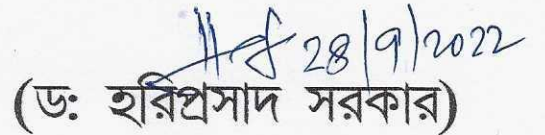 28/9/2022
(ড: হরিপ্রসাদ সরকার)